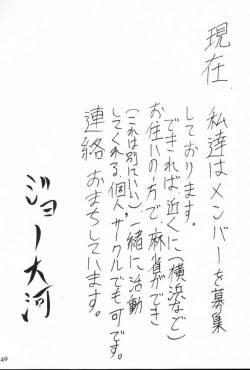 現在、
私達はメンバーを募集
しております。
できれば、近くに(横浜など)
お住いの方で、麻雀ができ
(これは別にいい)一緒に活動
してくれる、個人、サークルでも可です。
連絡おまちしています。
ジョー大河
49